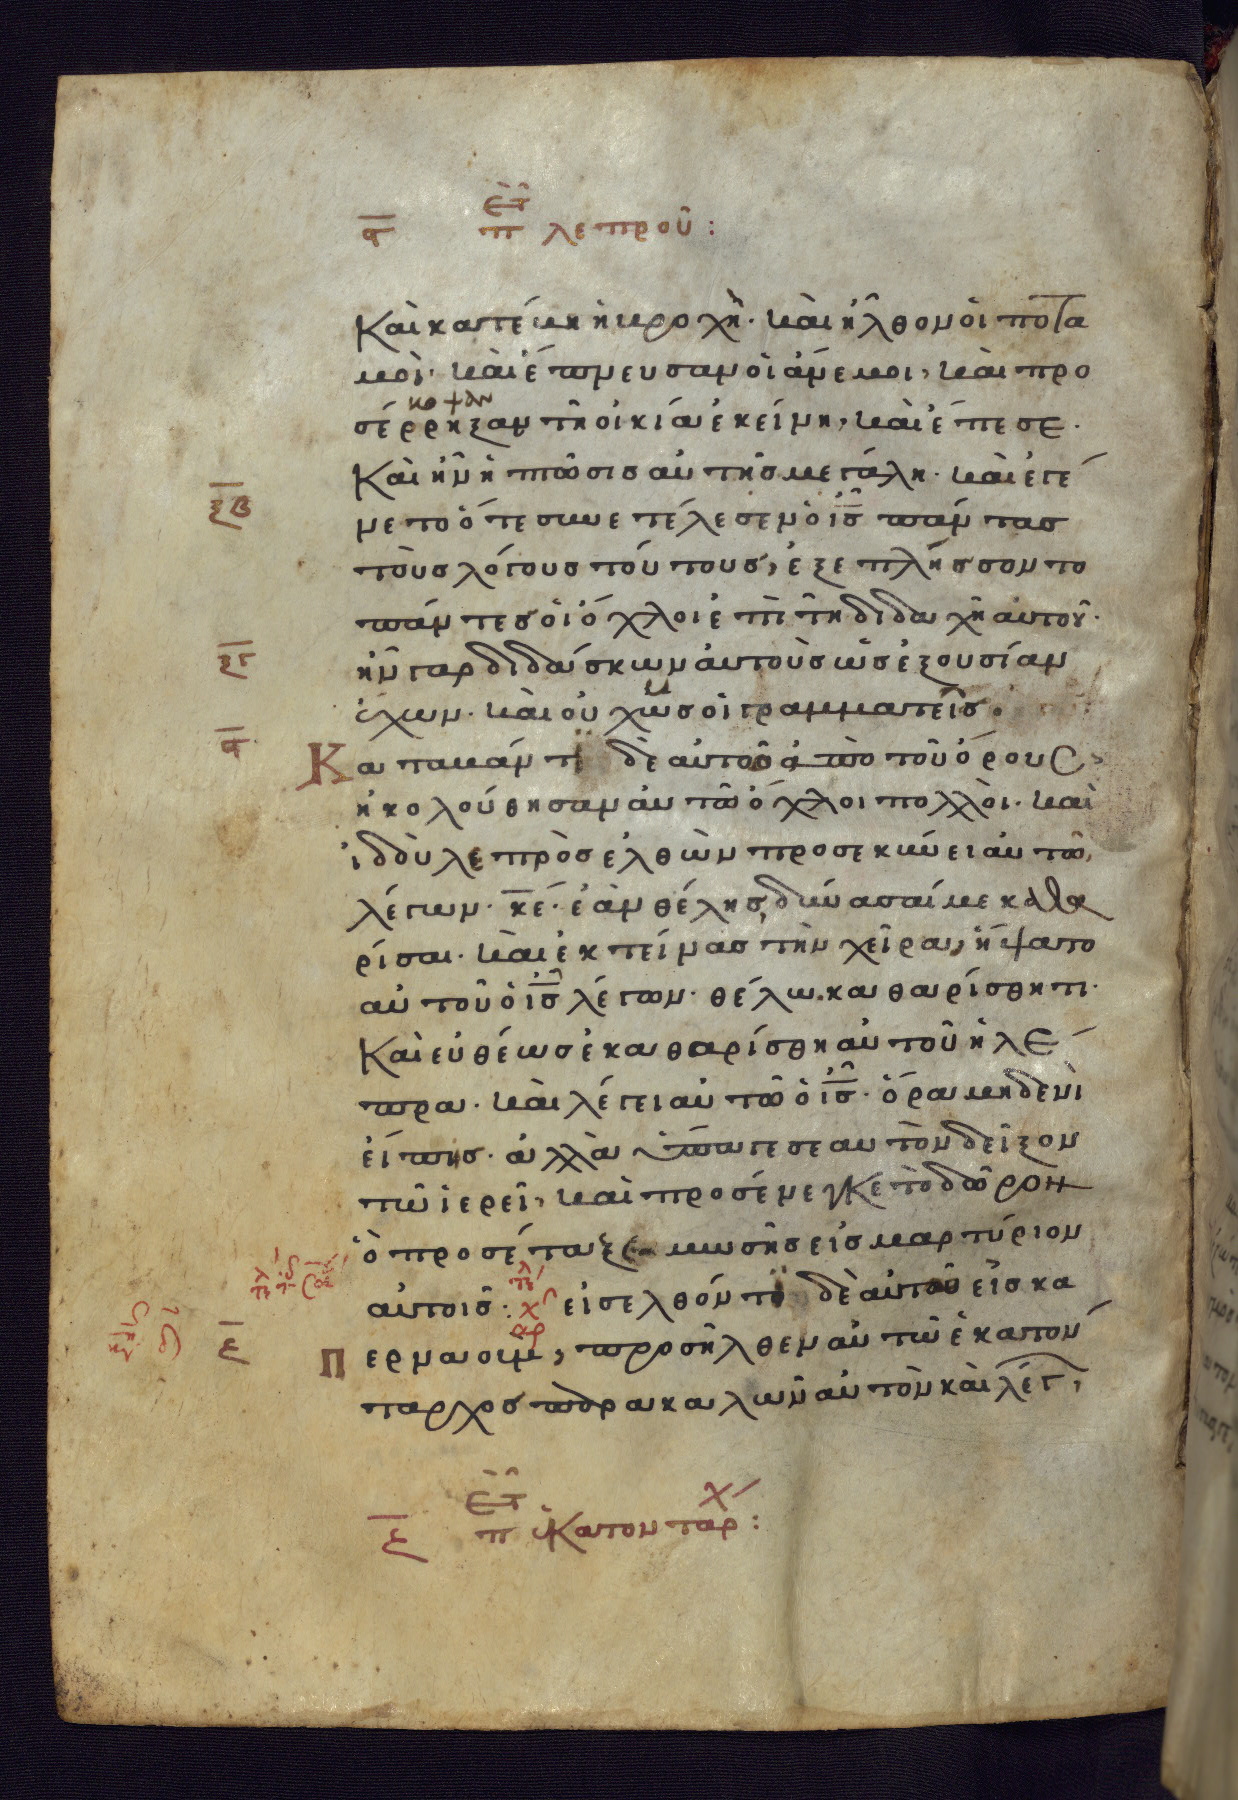 ς̄ πε τοῦ λεπροῦ:
Καὶ κατέβη ἡ βροχὴ· καὶ ἦλθον οἱ ποτα
μοὶ· καὶ ἔπνευσαν οἱ ἄνεμοι, καὶ προ
κοψαν
σέρρηξαν τῆ οἰκία ἐκείνη, καὶ ἔπεσε·
Καὶ ἦν ἡ πτῶσις αὐτῆς μεγάλη· καὶ ἐγέ
ξ̄β̄
νετο ὅτε συνετέλεσεν ὁ ῑς̄ πάντας
τοὺς λόγους τούτους, ἐξεπλήσσοντο
πάντες οἱ ὄχλοι ἐπὶ τῆ διδαχῆ αὐτοῦ·
ξ̄γ̄
ἦν γαρ διδάσκων αὐτοὺς ὡς ἐξουσίαν
ἔχων· καὶ οὐχ ὡς οἱ γραμματεῖς.
ς̄
Καταβάντι δὲ αὐτοῦ ἀπὸ τοῦ ὄρους
ἠκολούθησαν αὐτῶ ὄχλοι πολλοὶ· καὶ
ἰδοὺ λεπρὸς ἐλθὼν προσεκύνει αὐτῶ,
λέγων· κ̄ε̄· ἐὰν θέλης, δύνασαί με καθα
ρίσαι· καὶ ἐκτείνας τὴν χεῖρα, ἥψατο
αὐτοῦ ὁ ῑς̄ λέγων· θέλω. καθαρίσθητι·
Καὶ εὐθέως ἐκαθαρίσθη αὐτοῦ ἡ λέ
πρα· καὶ λέγει αὐτῶ ὁ ῑς̄· ὅρα μηδενὶ
εἴπης· ἀλλὰ ὕπαγε σεαυτὸν δεῖξον
τῶ ἱερεῖ, καὶ προσένεγκε τὸ δῶρον
ὃ προσέταξε μωσῆς εἰς μαρτύριον
αὐτοις: εἰσελθόντι δὲ αὐτοῦ εἰς κα
ε̄
Περναουμ, προσῆλθεν αὐτῶ ἑκατόν
ταρχος παρακαλῶν αὐτὸν καὶ λέγ,
ε̄ πε τοῦ ἑκατονταρχ: